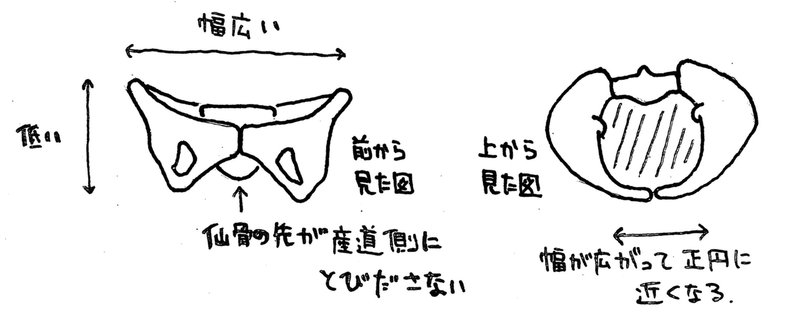 幅広い
低い
前から
見た図
仙骨の先が産道側に
とびださない
上から
見た図
幅が広がって正円に
近くなる.